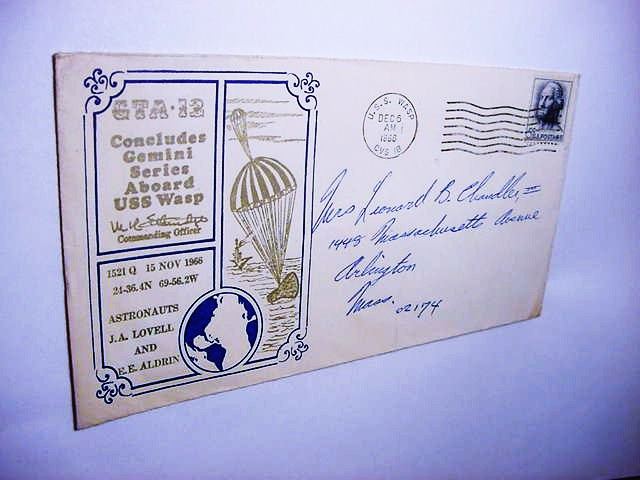 GTA-12
Concludes
Gemini
Series
Aboard
USS Wasp
Commanding Officer
1521 Q 15 NOV 1966
24-36.4N 69-56.2W
ASTRONAUTS
J.A. LOVELL
AND
E.E. ALDRIN
U.S.S. WASP
DEC 5
AM
1966
CVS 18
U.S. POSTAGE
Mrs Leonard B. Chandler, III
1448 Massachusetts Avenue
Arlington
Mass.
02174